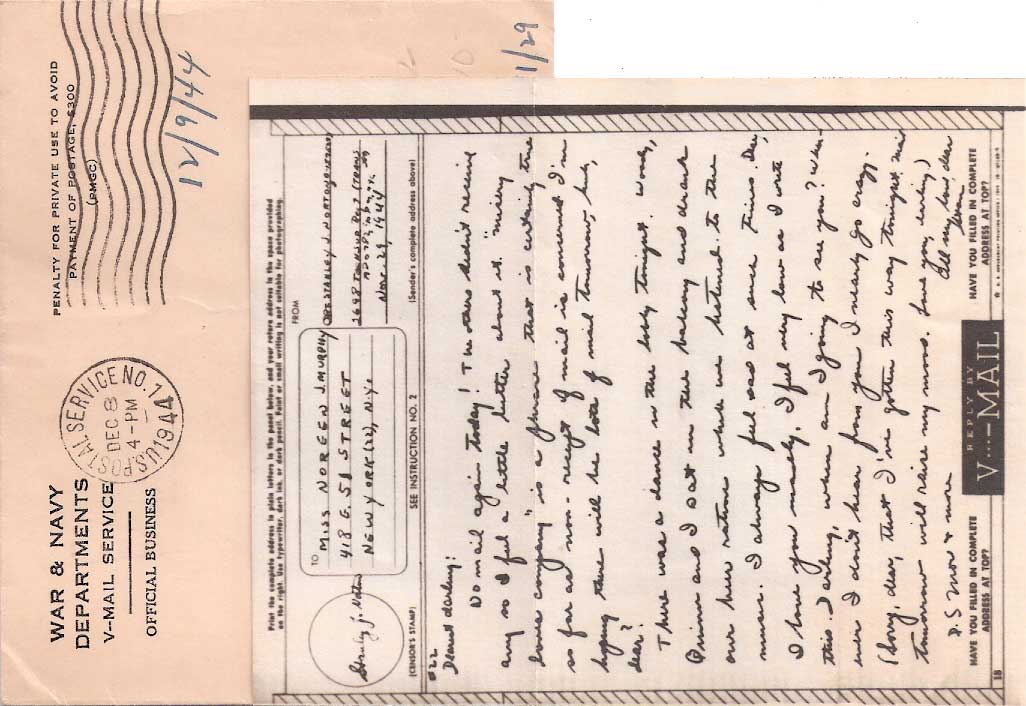 PENALTY FOR PRIVATE USE TO AVOID
PAYMENT OF POSTAGE, $300
(PMGC)
12/9/44
11/29
U.S. POSTAL SERVICE NO. 1
DEC 8
4-PM
1944
WAR & NAVY
DEPARTMENTS
V-MAIL SERVICE
OFFICIAL BUSINESS
Print the complete address in plain letters in the panel below, and your return address in the space provided
on the right. Use typewriter, dark ink, or dark pencil. Faint or small writing is not suitable for photographing.
TO
MISS NOREEN J. MURPHY
418 E. 51 STREET
NEW YORK (22), N.Y.
FROM
STANLEY J. NORTON
Nov. 29, 1944
(CENSOR'S STAMP)
SEE INSTRUCTION NO. 2
(Sender's complete address above)
#22
Dearest darling:
No mail again today! The others didn't receive
any so I feel a little better about it. "misery
loves company" is a phrase that is certainly true
so far as non-receipt of mail is concerned. I'm
hoping there will be lots of mail tomorrow, huh,
dear?
There was a dance in the lobby tonight. Woody,
and I sat on the balcony and drank
our beer ration while we listened to the
music. I always feel sad at such times. Dear,
I love you madly. I feel very low as I write
this. Darling, when am I going to see you? When-
ever I don't hear from you I nearly go crazy.
(Sorry, dear, that I've gotten this way tonight. Mail
tomorrow will raise my morale. Love you, darling)
All my love, dear
Stan
P.S. more & more
HAVE YOU FILLED IN COMPLETE
ADDRESS AT TOP?
REPLY BY
V···—MAIL
HAVE YOU FILLED IN COMPLETE
ADDRESS AT TOP?